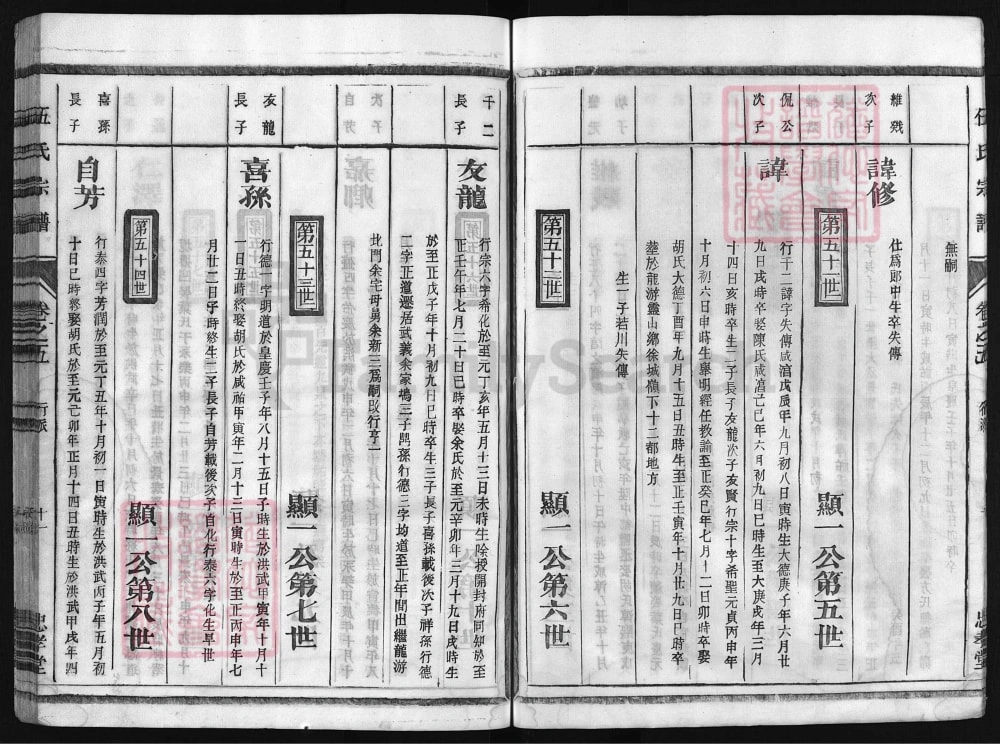 無嗣
維戣
次子
諱修
仕爲郎中生卒失傳
第五十一世
顯一公第五世
侃公
次子
諱
行千二諱字失傳咸淳戊辰年九月初八日寅時生大德庚子年六月廿
九日戌時卒娶陳氏咸淳己巳年六月初九日巳時生至大庚戌年三月
十四日亥時卒生二子長子友龍次子友賢行宗十字希聖元貞丙申年
十月初六日申時生舉明經任教諭至正癸巳年七月十二日卯時卒娶
胡氏大德丁酉年九月十五日丑時生至正壬寅年十月廿九日巳時卒
塟於龍游靈山鄉徐城嶺下十二都地方
生一子若川失傳
第五十二世
顯一公第六世
千二
長子
友龍
行宗六字希化於至元丁亥年五月十三日未時生除授開封府同知於至
正壬午年七月二十日巳時卒娶余氏於至元辛卯年三月十九日戌時生
於至正戊子年十月初九日巳時卒生三子長子喜孫載後次子祥孫行德
二字正道遷居武義余家塢三子閗孫行德三字均道至正年間出繼龍游
北門余宅母舅余新三爲嗣改行亨二
第五十三世
顯一公第七世
友龍
長子
喜孫
行德一字明道於皇慶壬子年八月十五日子時生於洪武甲寅年十月十
一日丑時終娶胡氏於咸祐甲寅年二月十三日寅時生於至正丙申年七
月廿二日子時終生二子長子自芳載後次子自化行泰六字化生早世
第五十四世
顯一公第八世
喜孫
長子
自芳
行泰四字芳潤於至元丁丑年十月初一日寅時生於洪武丙子年五月初
十日巳時終娶胡氏於至元己卯年正月十四日丑時生於洪武甲戌年四
伍氏宗譜
卷之五
行派
十一
忠孝堂